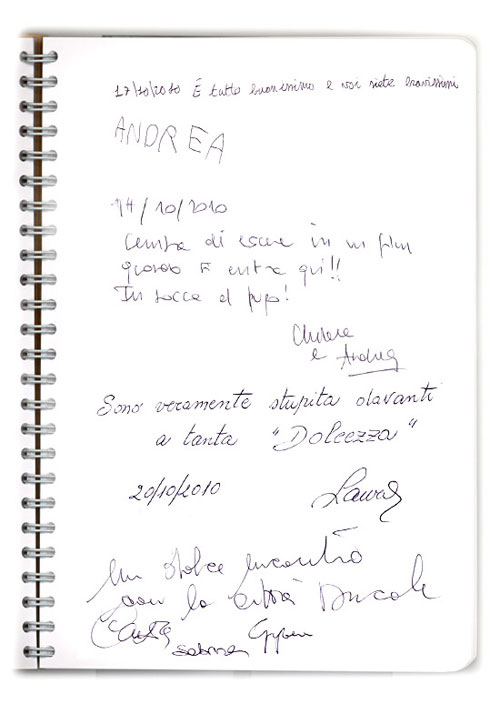 17/10/2010 È tutto buonissimo e voi siete bravissimi
ANDREA
14/10/2010
Sembra di essere in un film
quando si entra qui!!
In bocca al lupo!
e Andrea
Sono veramente stupita davanti
a tanta "Dolcezza"
20/10/2010 Laura
Un dolce incontro
con la città Ducale
Sabrina